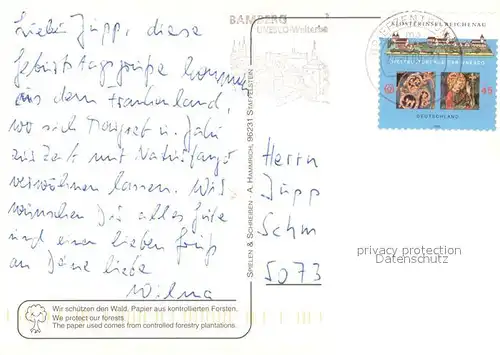 Lieber Jupp, diese
Geburtstagsgrüße kommen
aus dem Frankenland,
wo sich Margret u.
zur Zeit mit Naturfango
verwöhnen lassen. Wir
wünschen Dir alles Gute
und einen lieben Gruß
an Deine liebe
Wilma
Wir schützen den Wald, Papier aus kontrollierten Forsten.
We protect our forests
The paper used comes from controlled forestry plantations.
SPIELEN & SCHREIBEN - A. HAMMRICH, 96231 STAFFELSTEIN
BAMBERG
UNESCO-Welterbe
KLOSTERINSEL REICHENAU
45
DEUTSCHLAND
Herrn
Jupp
Schm
5073
privacy protection
Datenschutz